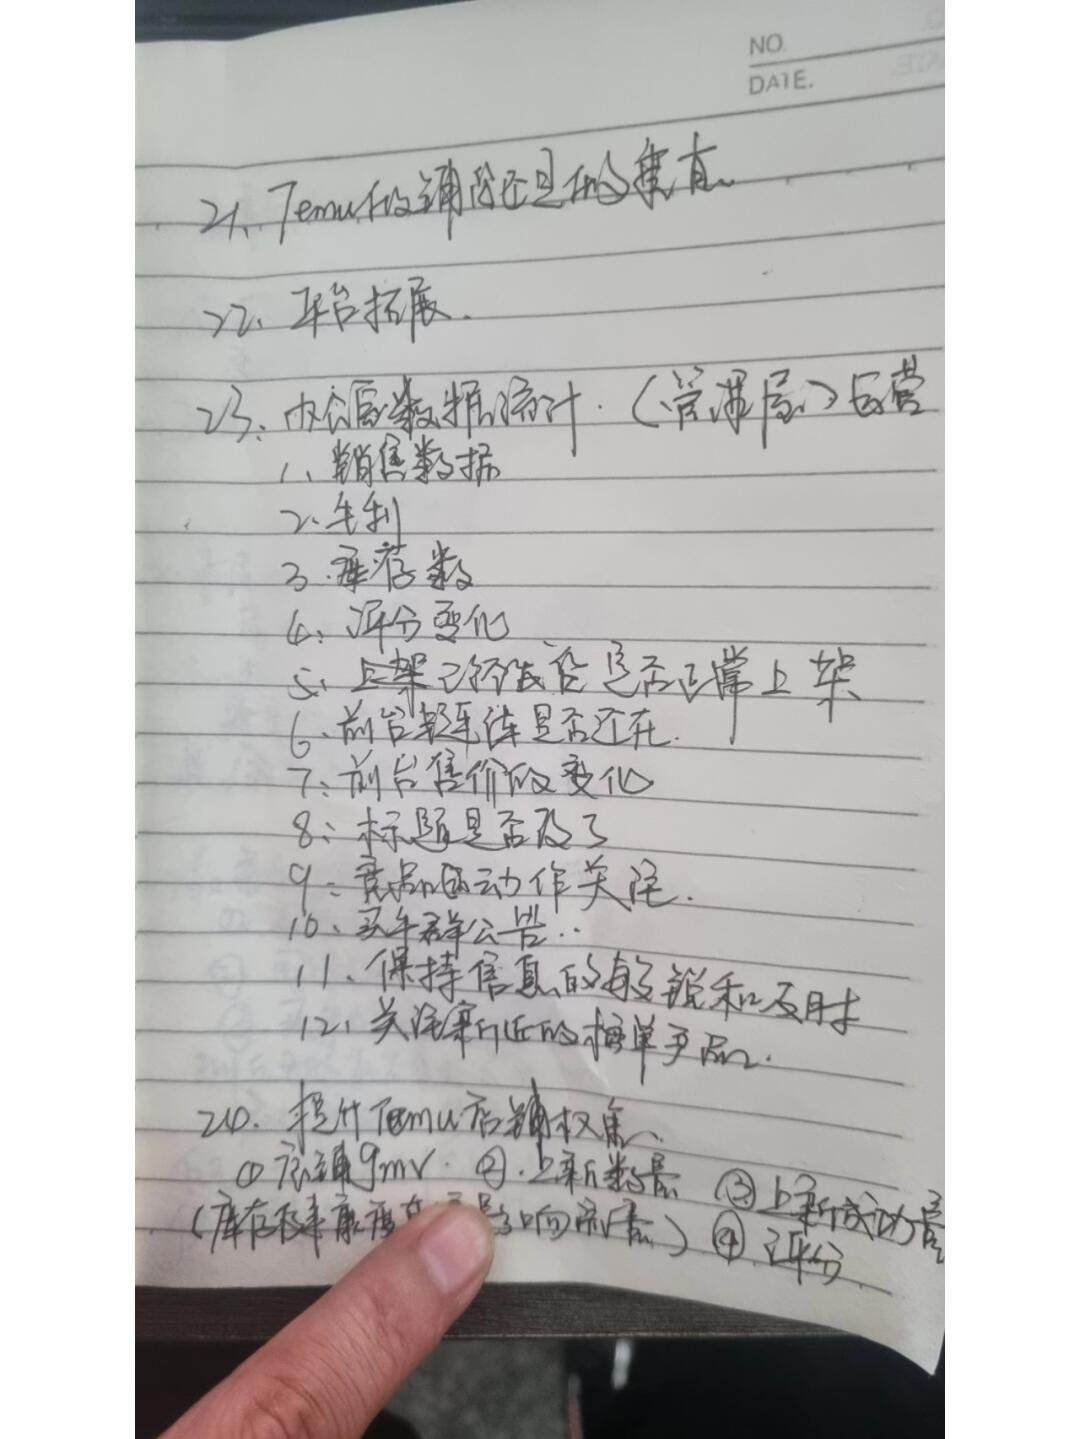 NO.
DATE.
21、Temu做铺货还是做垂直、
22、平台拓展.
23、内层数据统计.(管理层)运营
1、销售数据
2、毛利
3、库存数
4、评分变化
5、上架已经是否正常上架
6、前台链接是否还在.
7、前台售价的变化
8、标题是否改了
9、竞品的动作关注.
10、买手群公告..
11、保持信息的敏锐和及时
12、关注新近的爆单产品.
24、提升Temu店铺权重、
①店铺gmv. ②.上新数量 ③上新成功量
(库存健康度 影响流量) ④评分